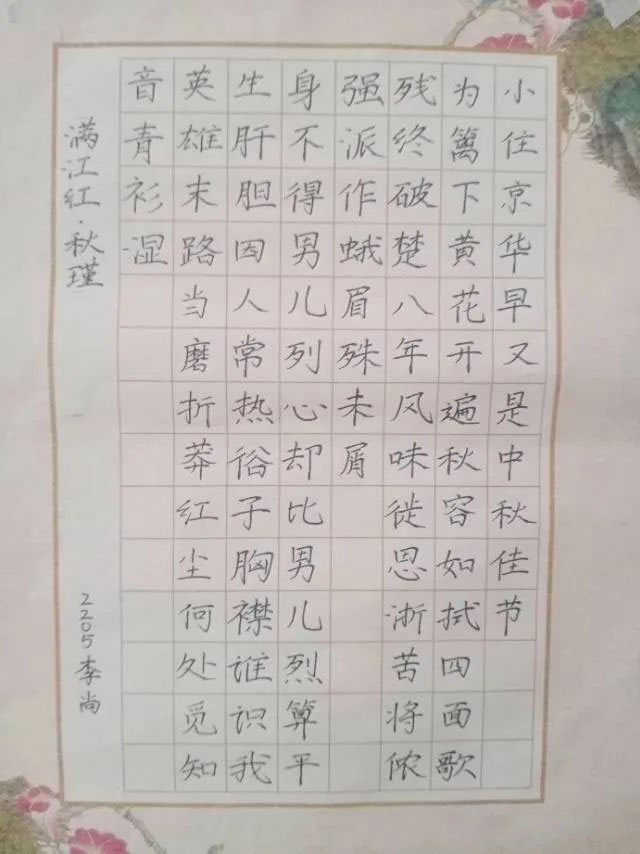 小住京华早又是中秋佳节
为篱下黄花开遍秋容如拭四面歌
残终破楚八年风味徒思浙苦将侬
强派作蛾眉殊未屑
身不得男儿列心却比男儿烈算平
生肝胆因人常热俗子胸襟谁识我
英雄末路当磨折莽红尘何处觅知
音青衫湿
满江红·秋瑾
2205李尚